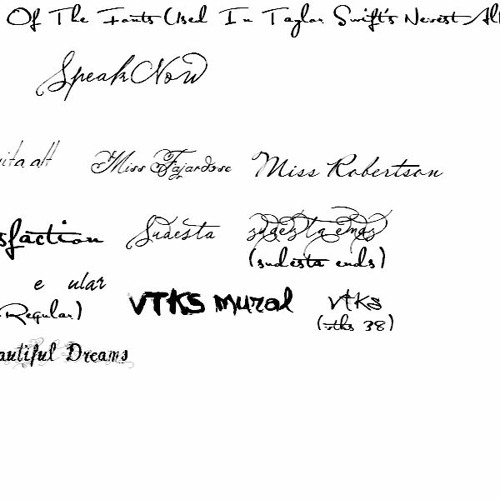 Of The Fonts Used In Taylor Swift's Newest Al
Speak Now
ita alt Miss Fajardose Miss Robertson
sfaction Sudesta sudesta ends
(sudesta ends)
e ular
Regular) VTKS Mural vtks
(vtks 38)
autiful Dreams